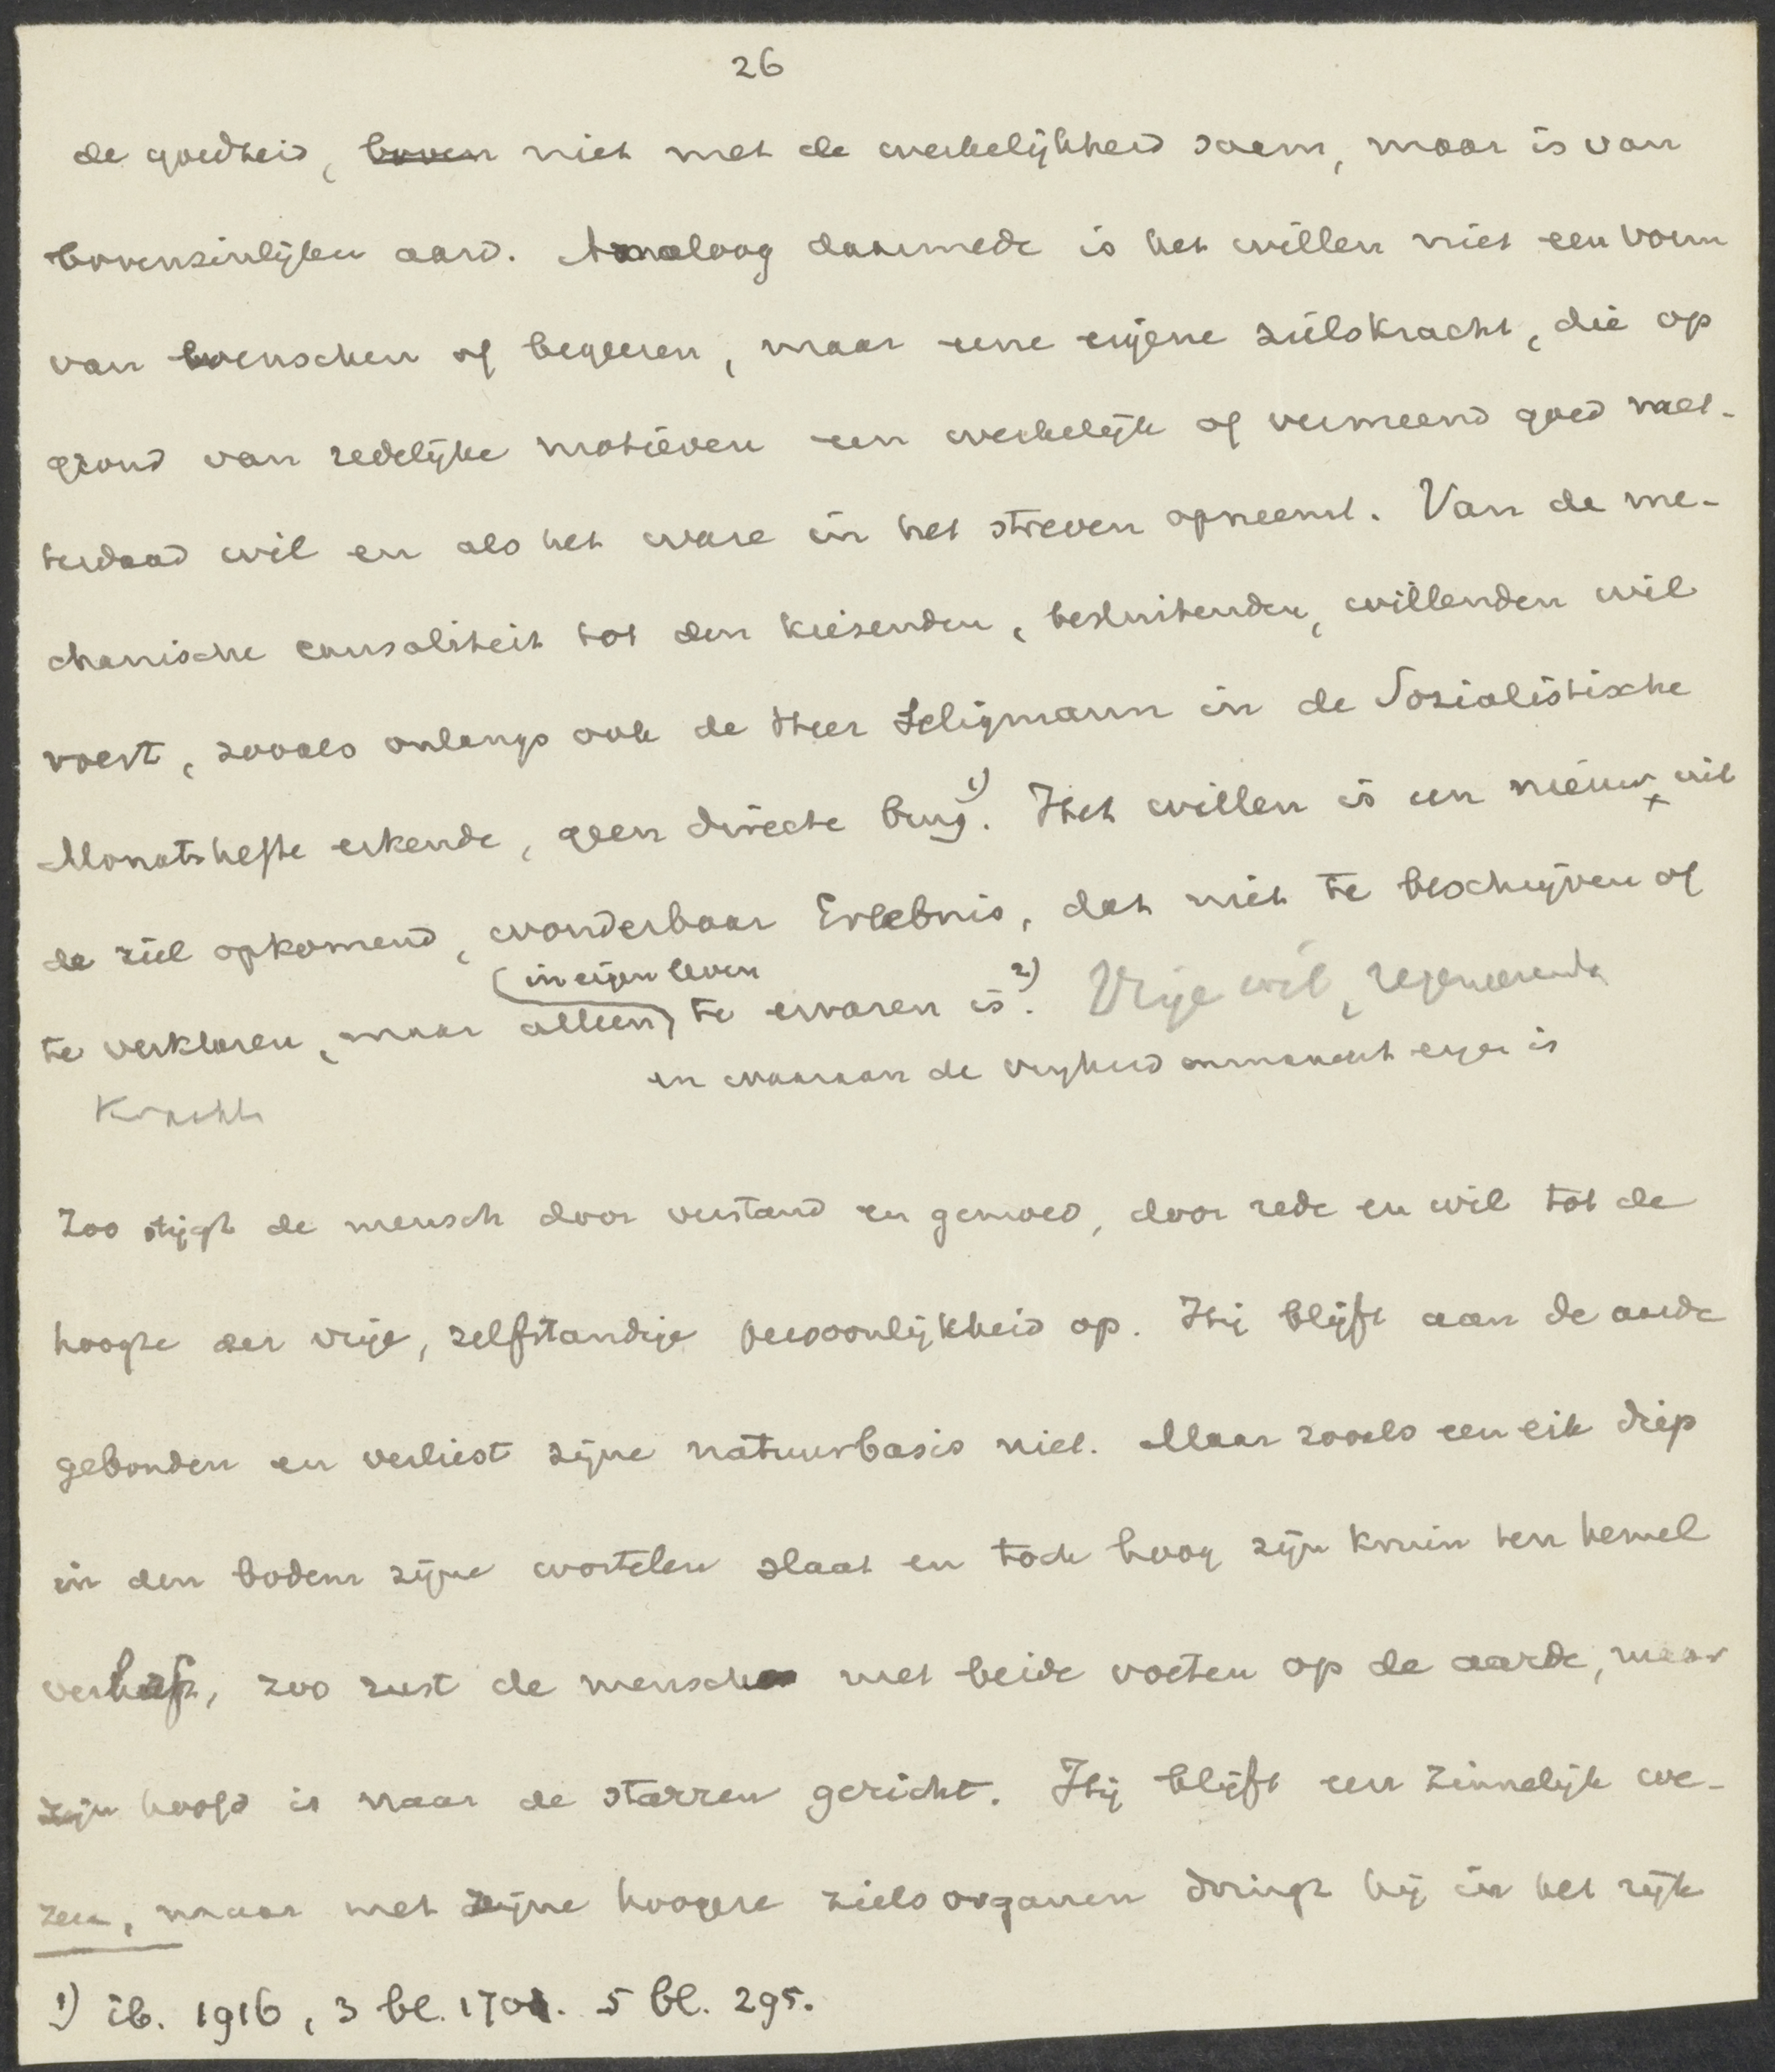 26
de goedheid, boven niet met de werkelijkheid saem, maar is van
bovenzinlijken aard. Analoog daarmede is het willen niet een vorm
van wenschen of begeeren, maar eene eigene zielskracht, die op
grond van redelijke motieven een werkelijk of vermeend goed met-
terdaad wil en als het ware in het streven opneemt. Van de me-
chanische causaliteit tot den kiezenden, besluitenden, willenden wil
voert, zooals onlangs ook de Heer Seligmann in de Sozialistische
Monatshefte erkende, geen directe brug 1). Het willen is een nieuw, uit
de ziel opkomend, wonderbaar Erlebnis, dat niet te beschrijven of
(in eigen leven
te verklaren, maar alleen) te ervaren is 2). Vrije wil, regeneerende
en waaraan de vrijheid immanent eigen is
Kracht
Zoo stijgt de mensch door verstand en gemoed, door rede en wil tot de
hoogte der vrije, zelfstandige persoonlijkheid op. Hij blijft aan de aarde
gebonden en verliest zijne natuurbasis niet. Maar zooals een eik diep
in den bodem zijne wortelen slaat en toch hoog zijn kruin ten hemel
verheft, zoo rust de mensch met beide voeten op de aarde, maar
zijn hoofd is naar de starren gericht. Hij blijft een zinnelijk we-
zen, maar met zijne hoogere zielsorganen dringt hij in het rijk
1) ib. 1916, 3 bl. 170. 5 bl. 295.